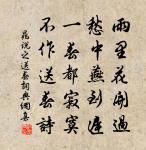 雨里花開過
愁中燕到遲
一春都寂寞
不作送春詩
晁说之送春詞典網集